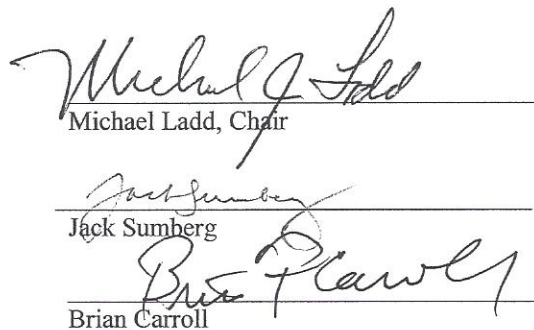 Michael J Ladd
Michael Ladd, Chair
Jack Sumberg
Jack Sumberg
Brian P Carroll
Brian Carroll